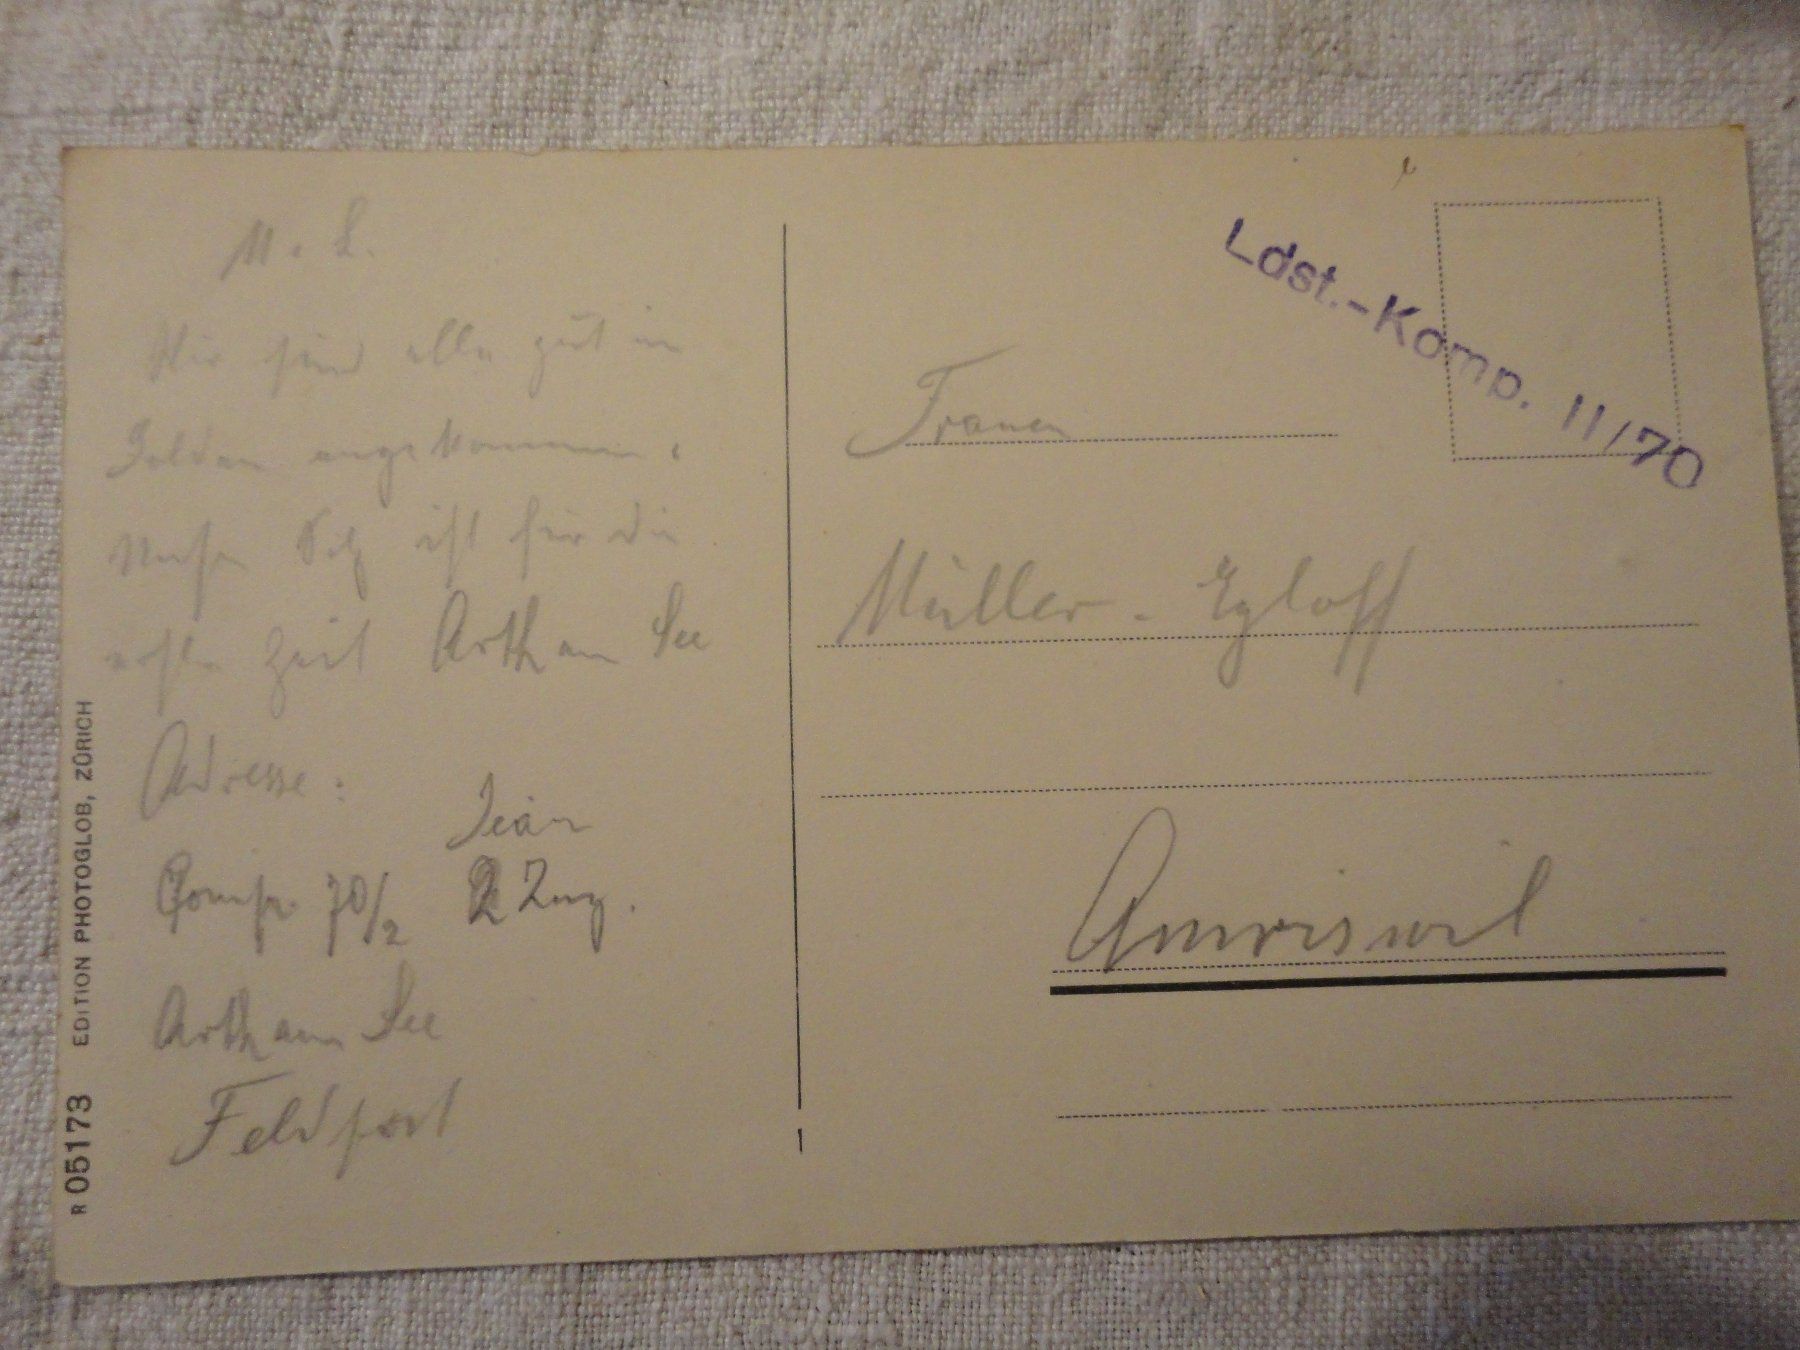 M. L.
Wir sind alle gut in
Goldau angekommen.
Unser Sitz ist für die
erste Zeit Arth am See
Adresse:
Jean
Comp. 70/2 2 Zug.
Arth am See
Feldpost
R 05173 EDITION PHOTOGLOB, ZÜRICH
Ldst.-Komp. II/70
Frauen
Müller-Egloff
Amriswil